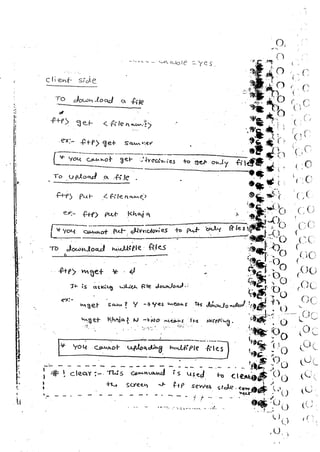 enable = yes
client side
To download a file
ftp> get <filename>
ex:- ftp> get sameer
* you cannot get directories to get only files
To upload a file.
ftp> put <filename>
ex:- ftp> put khaja
* you cannot put directories to put only files
To download multiple files
ftp> mget *
It is asking which file download..
ex:- mget sam? y → yes means
mget khaja? N → No means
* you cannot uploading multiple files
# ! clear :- This command is used to clear
the screen ftp server side.